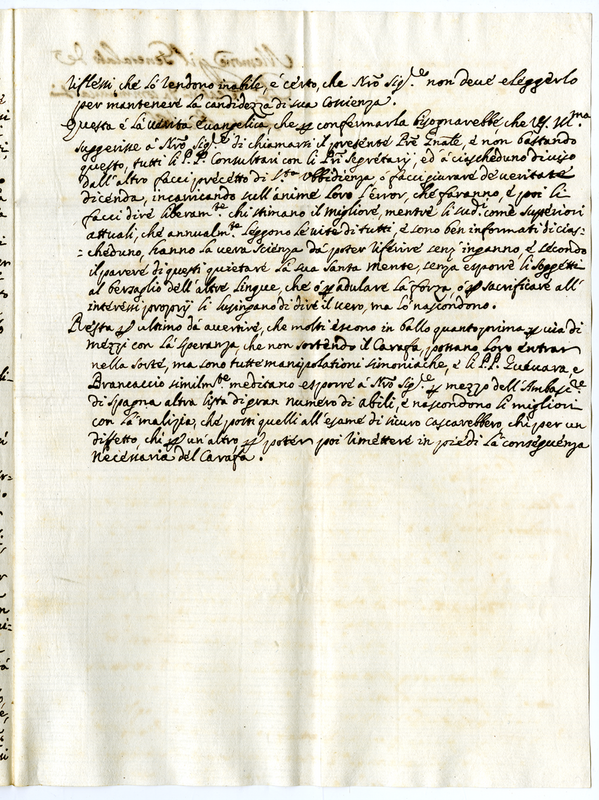 riflessi, che lo rendono inabile, è certo, che Nro Sig.re non deve eleggerlo
per mantenere la candidezza di sua Coscienza.
Questa è la verità Evangelica, che p confermarla bisognarebbe, che VS Ill.ma
suggerisse à Nro Sig.re di chiamarsi il presente Pre Gnale, e non bastando
questo, tutti li P.P. Consultori con li Pri Segretarj, ed à ciascheduno diviso
dall'altro facci precetto di S.ta Ubbidienza, ò facci giurare de veritate
dicenda, incarricando sull'anime loro l'error, che faranno, e poi li
facci dire liberam.te chi stimano il migliore, mentre li sud.i come Superiori
attuali, che annualm.te leggono le vite di tutti, e sono ben informati di cias=
=cheduno, hanno la vera scienza dà poter riferire senz'inganno, e secondo
il parere di questi quietare la sua Santa Mente, senza esporre li soggetti
al bersaglio dell'altre lingue, che ò p adulare la forza, ò p sacrificare all'
interessi proprij si lusingano di dire il vero, ma lo nascondono.
Resta p ultimo dà avertire, che molti escono in ballo quanto prima p via di
mezzi con la speranza, che non sortendo il Carafa, possano loro entrar
nella sorte, ma sono tutte manipolationi simoniache, e li P.P. Guevara, e
Brancaccio similm.te meditano esporre à Nro Sig.re p mezzo dell'Ambasc.re
di Spagna altra lista di gran numero di abili, e nascondono li migliori
con la malizia, che posti quelli all'esame di sicuro cascarebbero, chi per un
diffetto, chi p un'altro p poter poi rimettere in piedi la conseguenza
necessaria del Carafa.